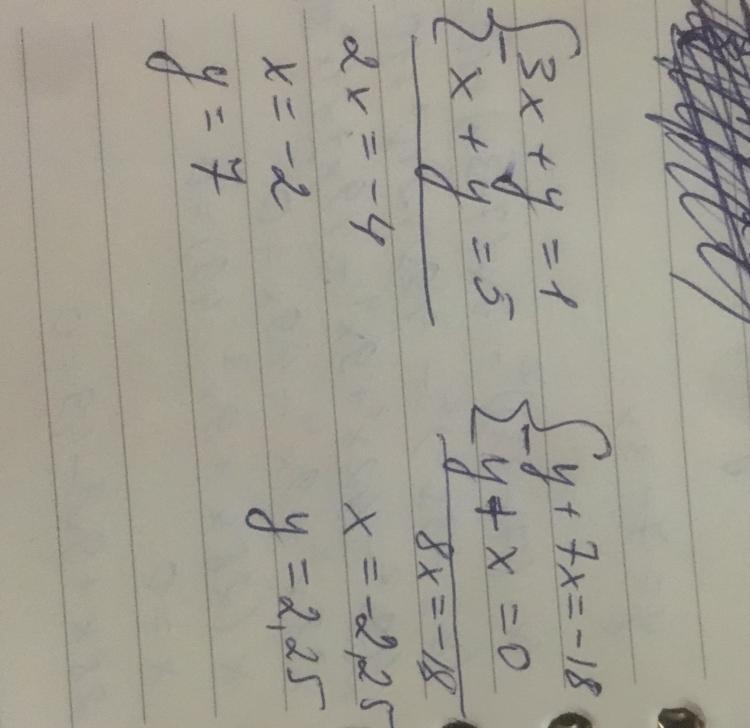 {3x + y = 1
- x + y = 5
2x = -4
x = -2
y = 7
{y + 7x = -18
- y + x = 0
8x = -18
x = -2,25
y = 2,25